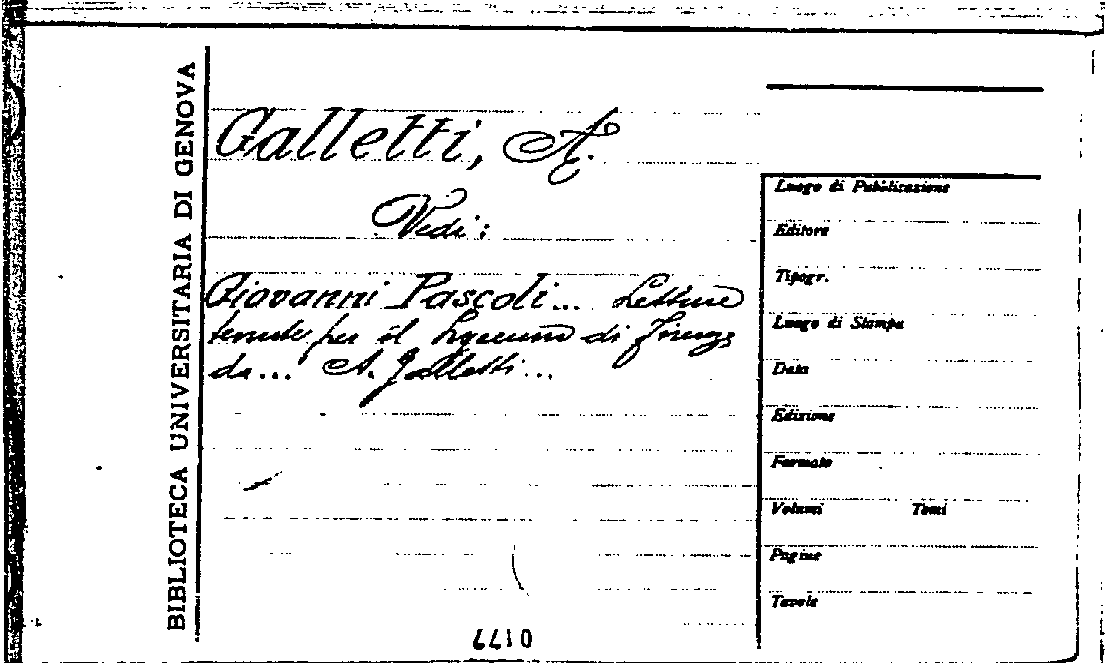 BIBLIOTECA UNIVERSITARIA DI GENOVA
Galletti, A.
Vedi:
Giovanni Pascoli... Letture
tenute per il Lyceum di Firenze
da... A. Galletti...
Luogo di Pubblicazione
Editore
Tipogr.
Luogo di Stampa
Data
Edizione
Formato
Volumi Tomi
Pagine
Tavole
0177